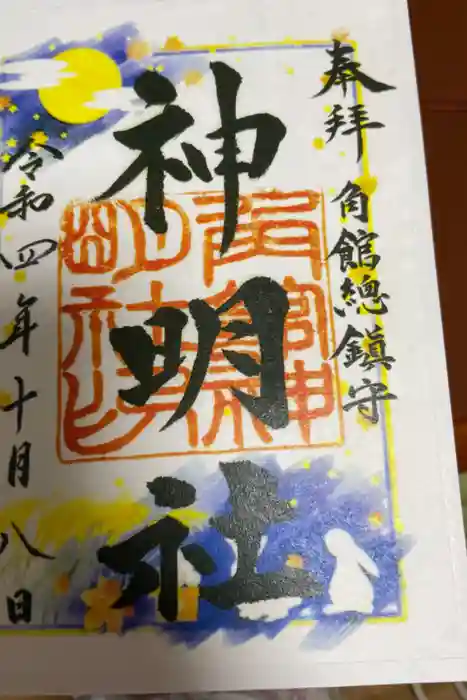 奉拝
角館總鎮守
神明社
令和四年十月八日